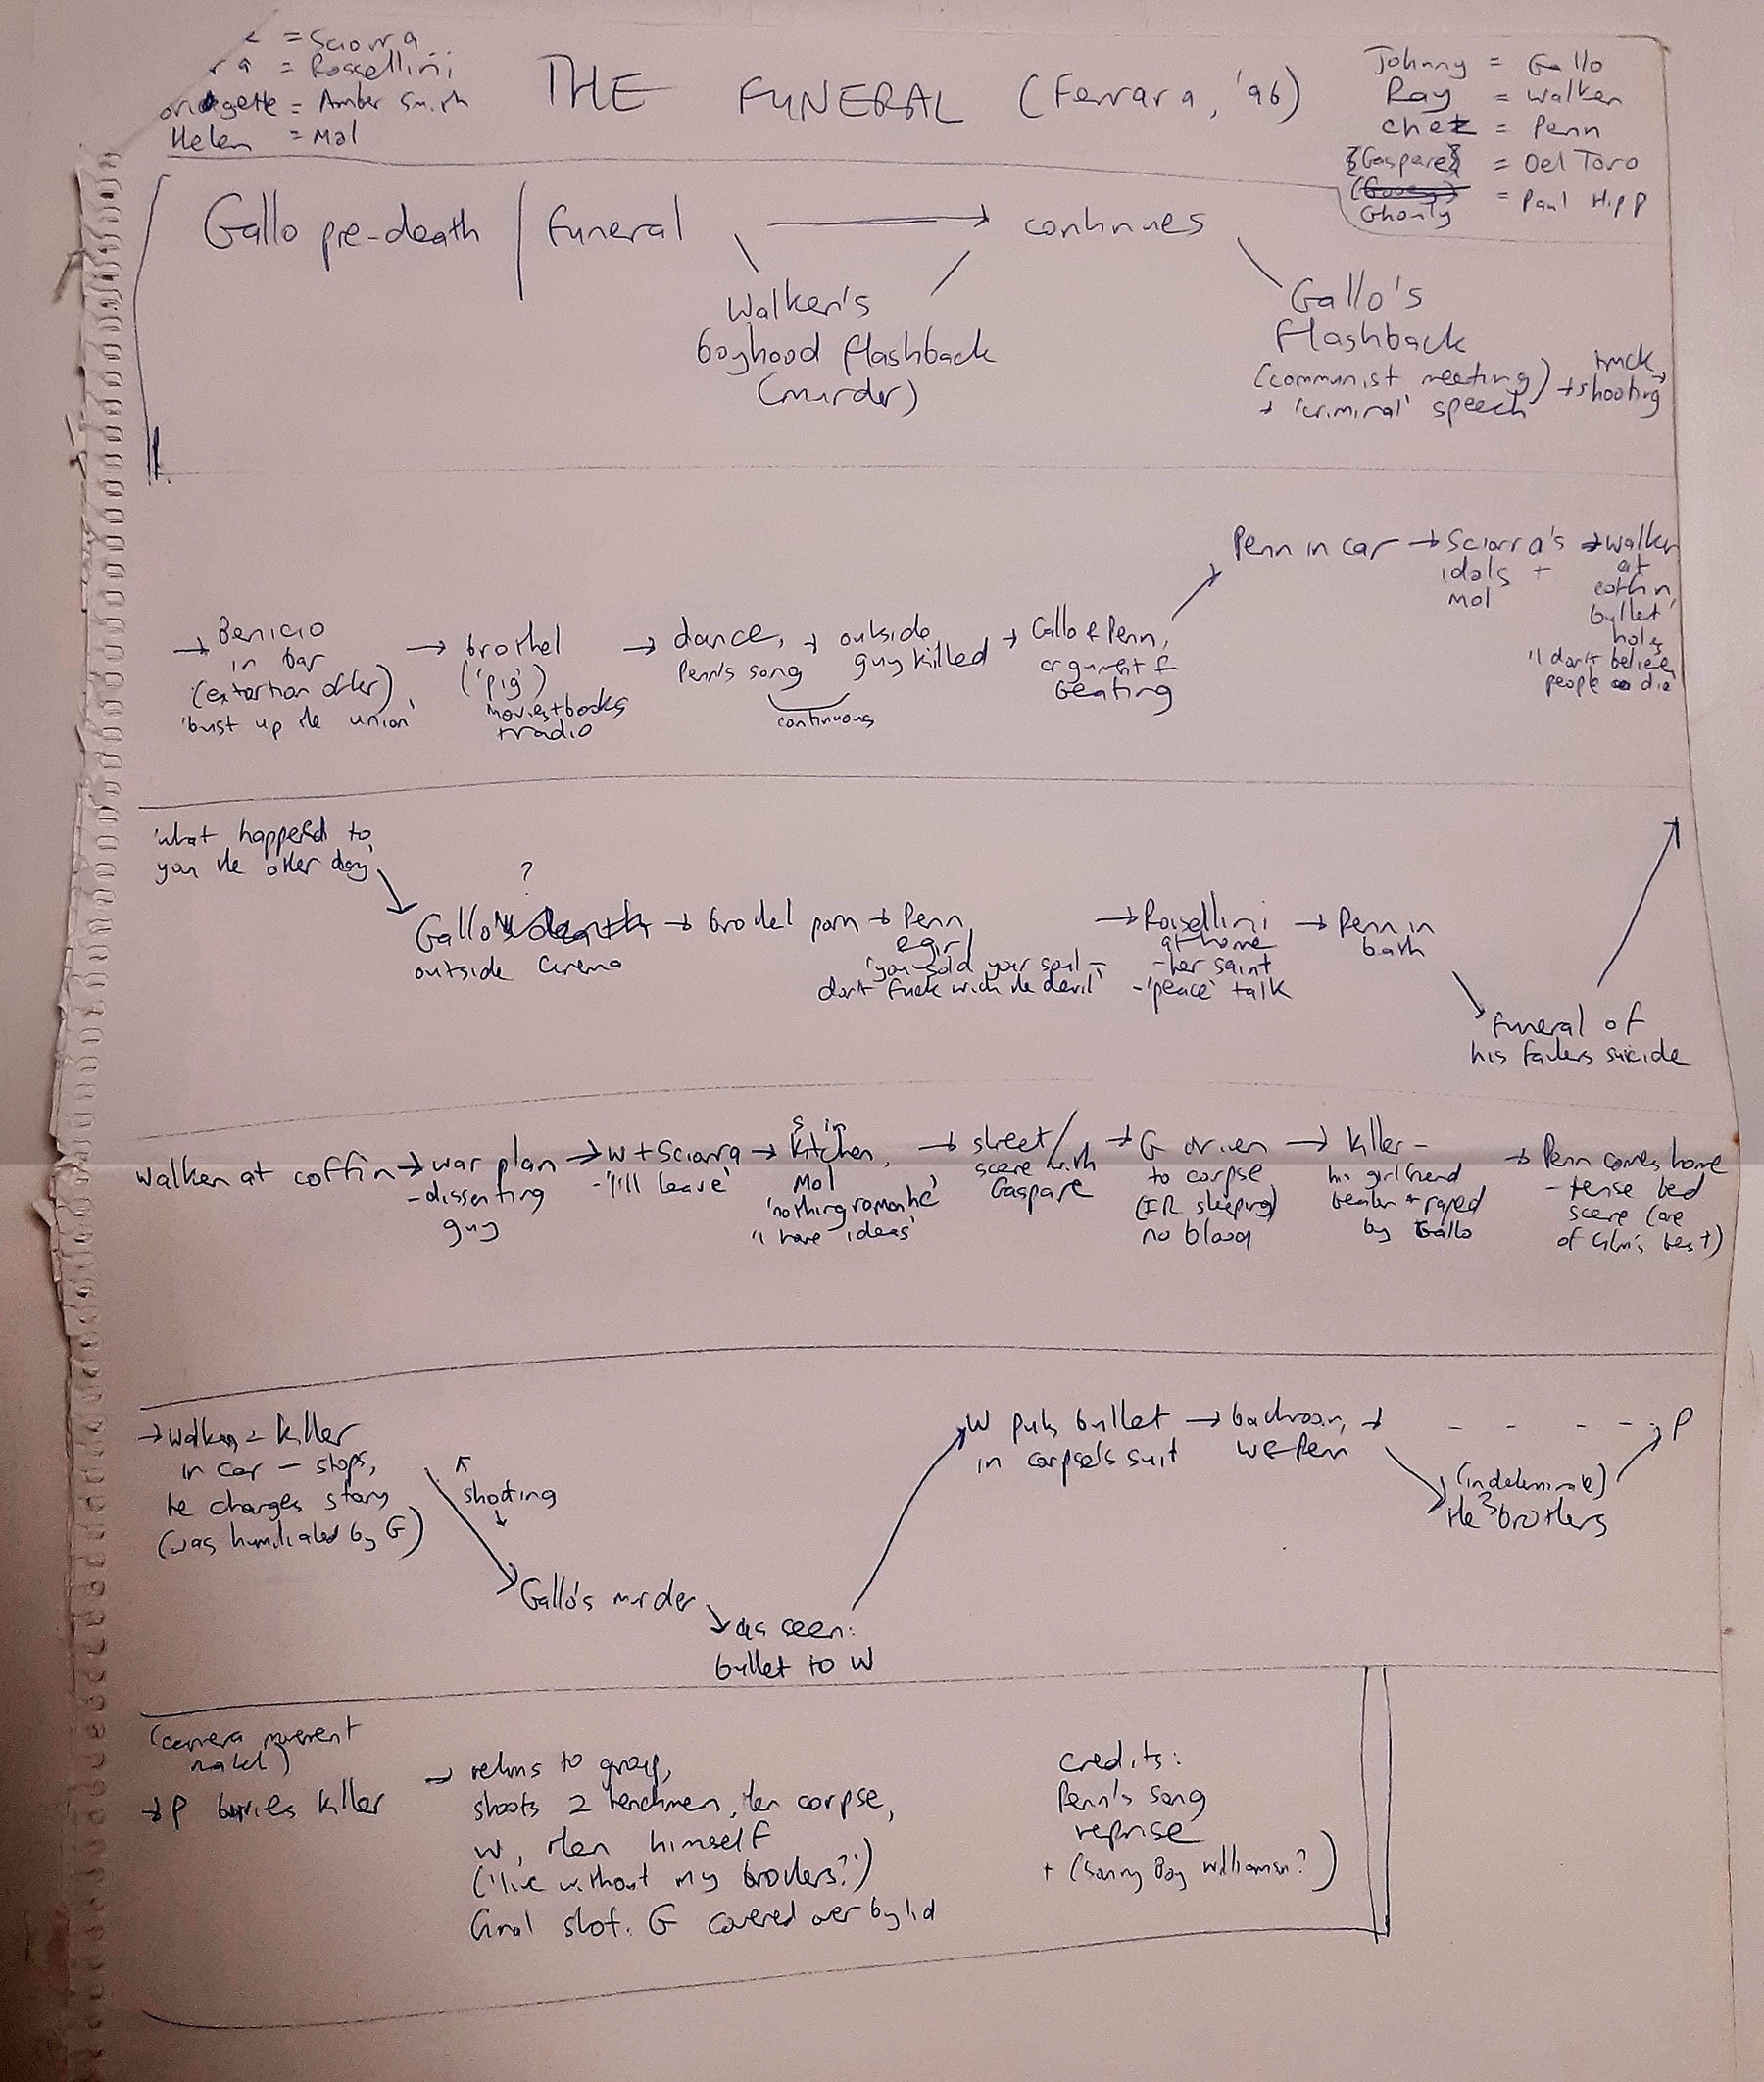 = Sciorra
= Rossellini
= Amber Smith
Helen = Mol
THE FUNERAL (Ferrara, '96)
Johnny = Gallo
Ray = Walken
Chez = Penn
{Gaspare} = Del Toro
Ghouly = Paul Hipp
Gallo pre-death | Funeral → continues
Walken's
boyhood flashback
(murder)
Gallo's
flashback
(communist meeting)
+ 'criminal' speech
+ truck
shooting
→ Benicio
in bar
(extortion offer)
'bust up the union'
→ brothel
('pig')
movies + books
+ radio
→ dance,
Penn's song
→ outside
guy killed
continuous
→ Gallo & Penn,
argument &
beating
Penn in car
→ Sciorra's
idols +
Mol
→ Walken
at
coffin
bullet
holes
'I don't believe
people die'
'what happened to
you the other day'
?
Gallo
outside cinema
→ brothel porn
→ Penn
& girl
'you sold your soul –
don't fuck with the devil'
→ Rossellini
at home
- her saint
- 'peace' talk
→ Penn in
bath
funeral of
his fathers suicide
Walken at coffin
→ war plan
- dissenting
guy
→ W + Sciorra
- 'I'll leave'
→ S in
kitchen,
Mol
'nothing romantic'
'I have ideas'
→ street
scene with
Gaspare
→ G driven
to corpse
(IR sleeping)
no blood
→ Killer –
his girlfriend
beaten + raped
by Gallo
→ Penn comes home
- tense bed
scene (one
of film's best)
→ Walken & killer
in car – stops,
he changes story
(was humiliated by G)
shooting
Gallo's murder
as seen:
bullet to W
W puts bullet
in corpse's suit
→ backroom,
W & Penn
→ - - - - P
(indeterminate)
the 3 brothers
(camera movement
→ P buries killer
→ returns to group,
shoots 2 henchmen, then corpse,
W, then himself
('live without my brothers?')
final shot: G covered over by lid
credits:
Penn's song
reprise
+ (Sonny Boy Williamson?)